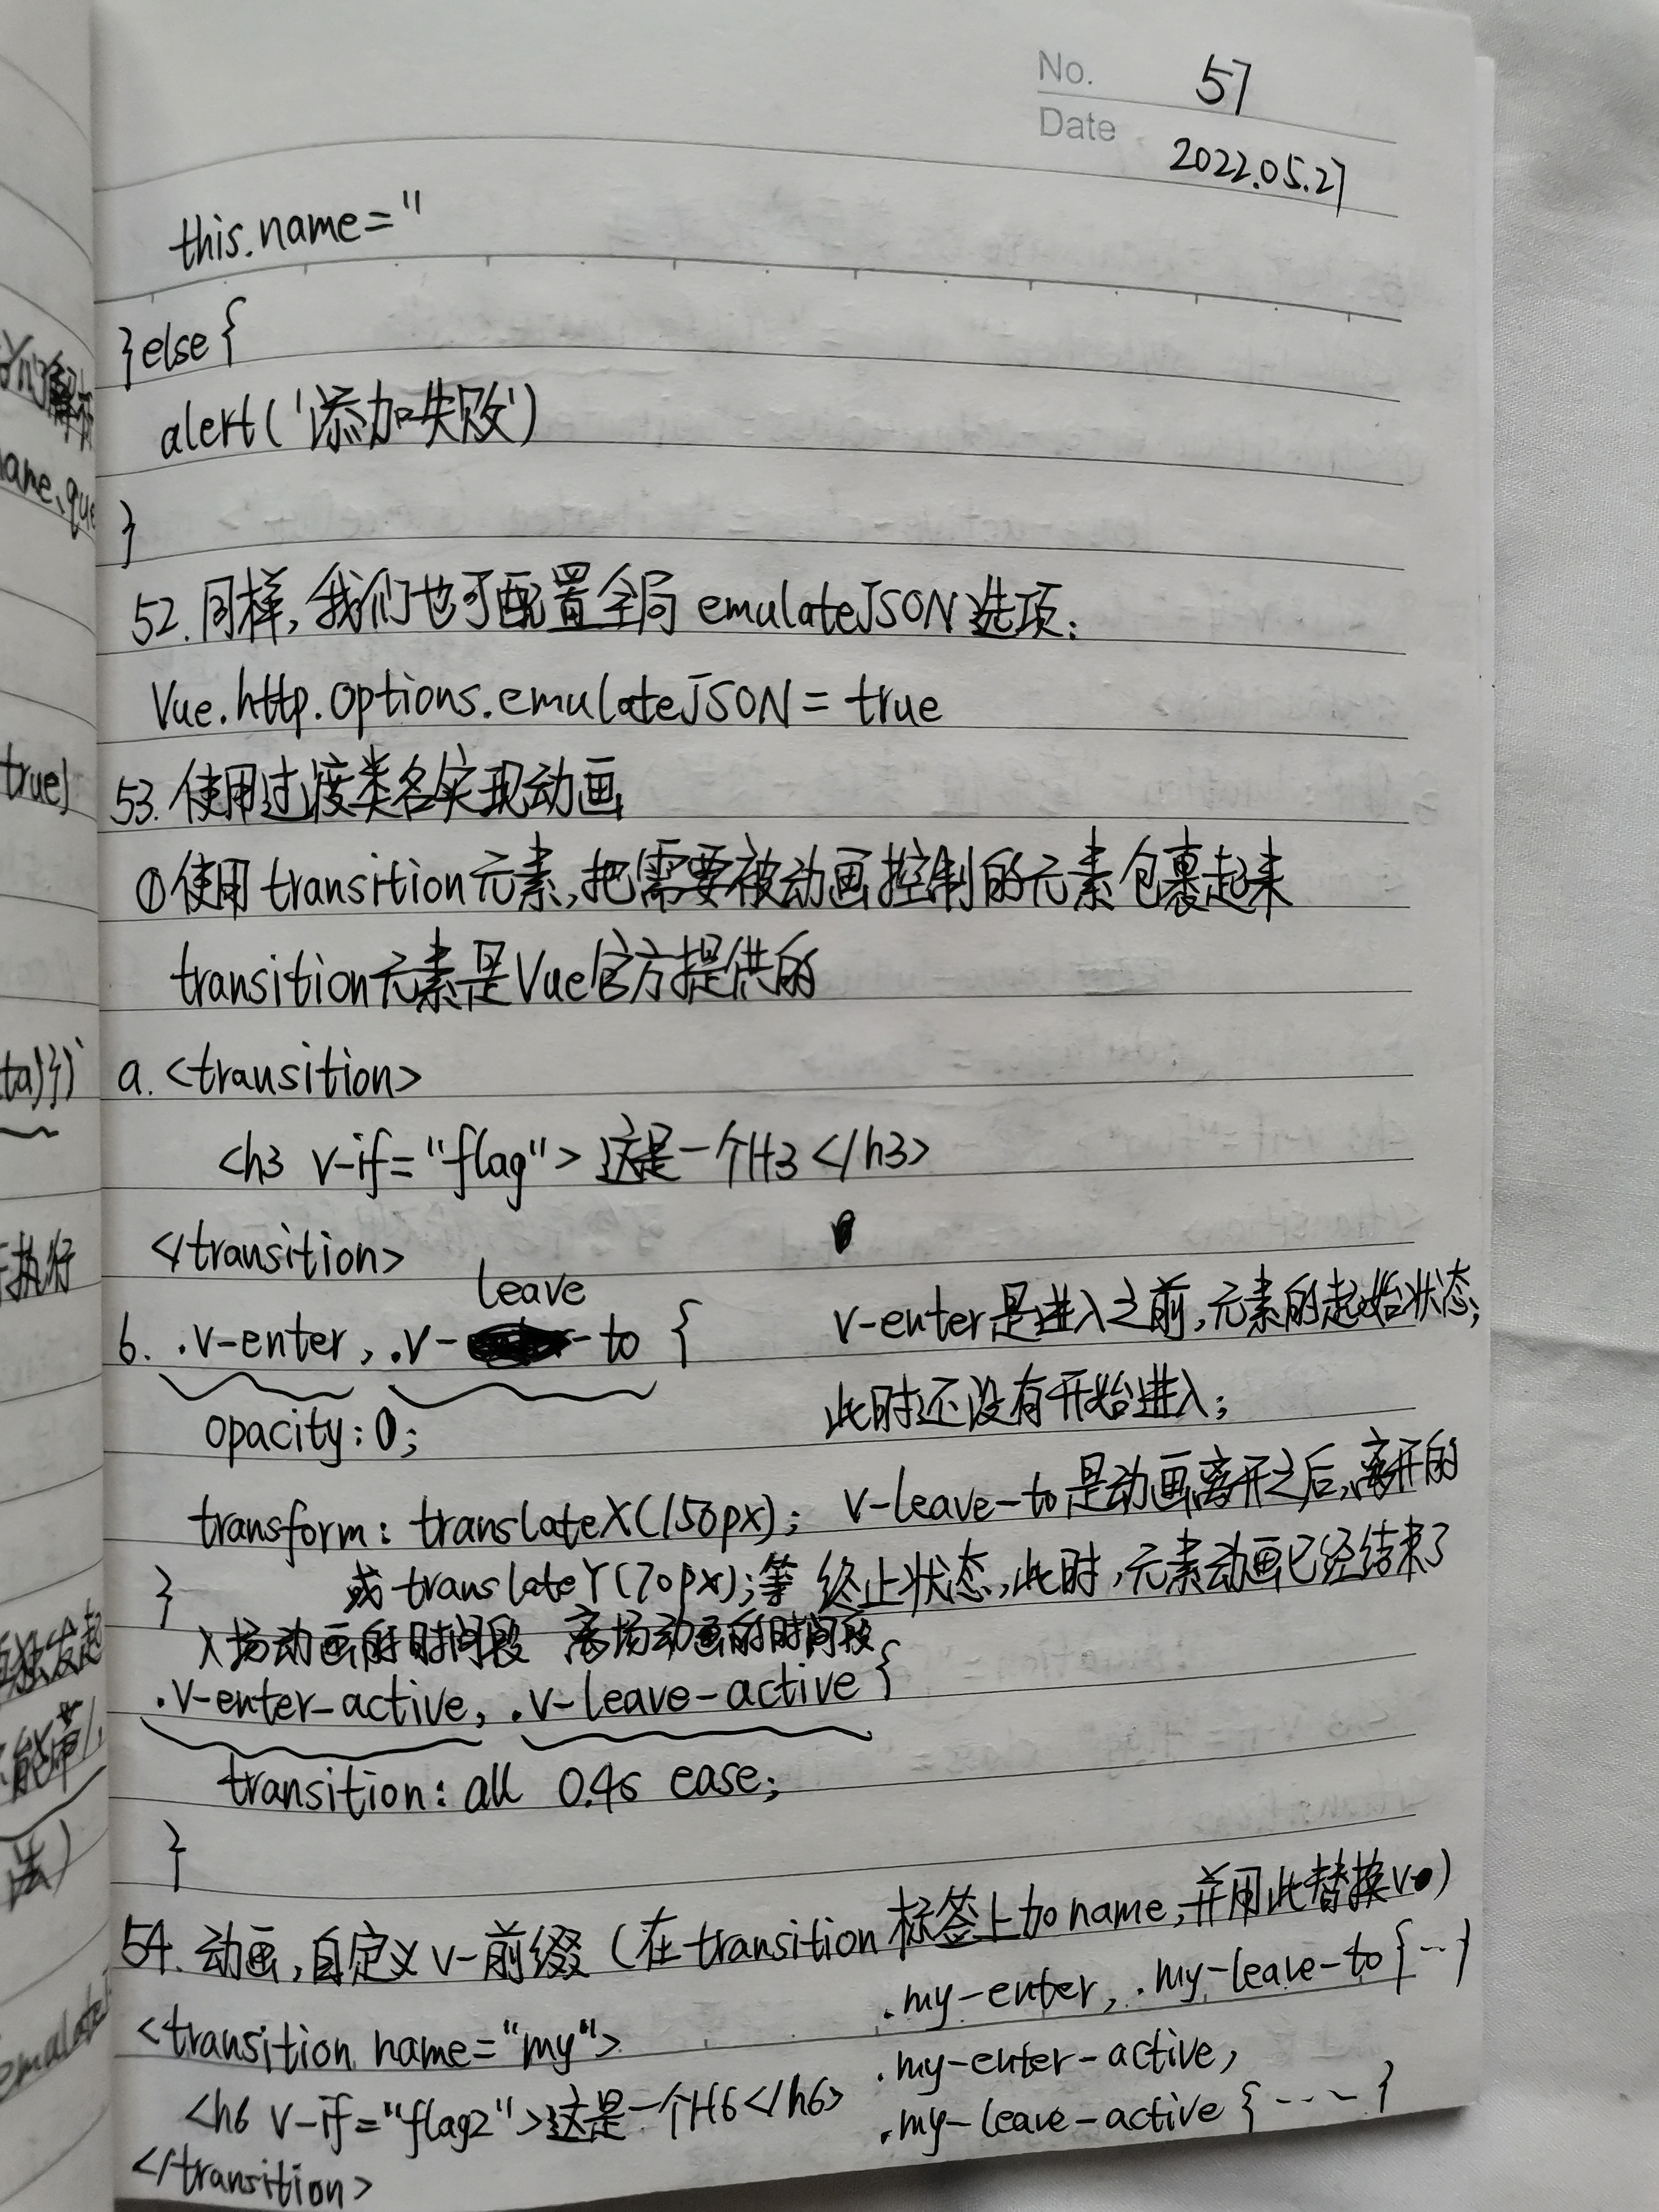 No. 57
Date 2022.05.27
this.name=''
}else{
alert('添加失败')
}
52.同样,我们也可配置全局 emulateJSON选项:
Vue.http.options.emulateJSON = true
53.使用过渡类名实现动画
①使用transition元素,把需要被动画控制的元素包裹起来
transition元素是Vue官方提供的
a.<transition>
<h3 v-if="flag">这是一个H3</h3>
</transition>
leave
b. .v-enter, .v- -to {
v-enter是进入之前,元素的起始状态;
此时还没有开始进入;
opacity:0;
transform: translateX(150px);
v-leave-to是动画离开之后,离开的
或translateY(70px);等
终止状态,此时,元素动画已经结束了
}
入场动画的时间段 离场动画的时间段
.v-enter-active, .v-leave-active{
transition: all 0.4s ease;
}
54.动画,自定义v-前缀(在transition标签上加name,并用此替换v)
<transition name="my">
<h6 v-if="flag2">这是一个H6</h6>
</transition>
.my-enter, .my-leave-to{…}
.my-enter-active,
.my-leave-active{----}
true)
ta)})
执行
法)